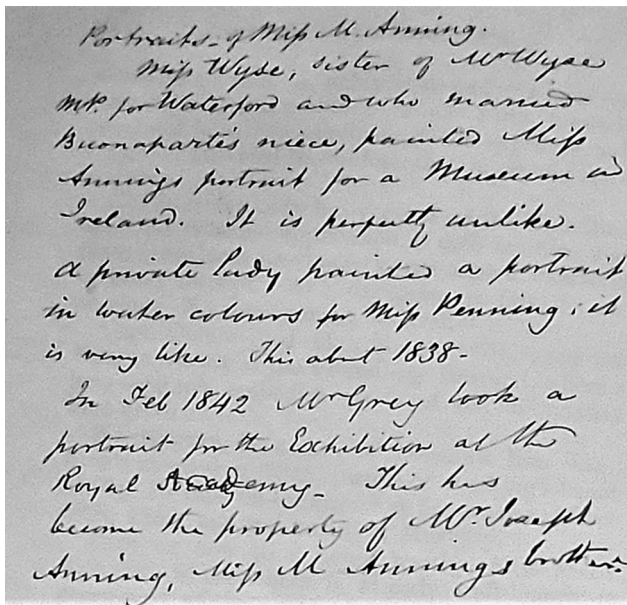 Portraits of Miss M. Anning.
Miss Wyse, sister of Mr Wyse
MP. for Waterford and who married
Buonaparte's niece, painted Miss
Annings portrait for a Museum in
Ireland. It is perfectly unlike.
A private lady painted a portrait
in water colours for Miss Penning; it
is very like. This about 1838-
In Feb 1842 Mr Grey took a
portrait for the Exhibition at the
Royal Academy- This has
become the property of Mr. Joseph
Anning, Miss M Annings brother.